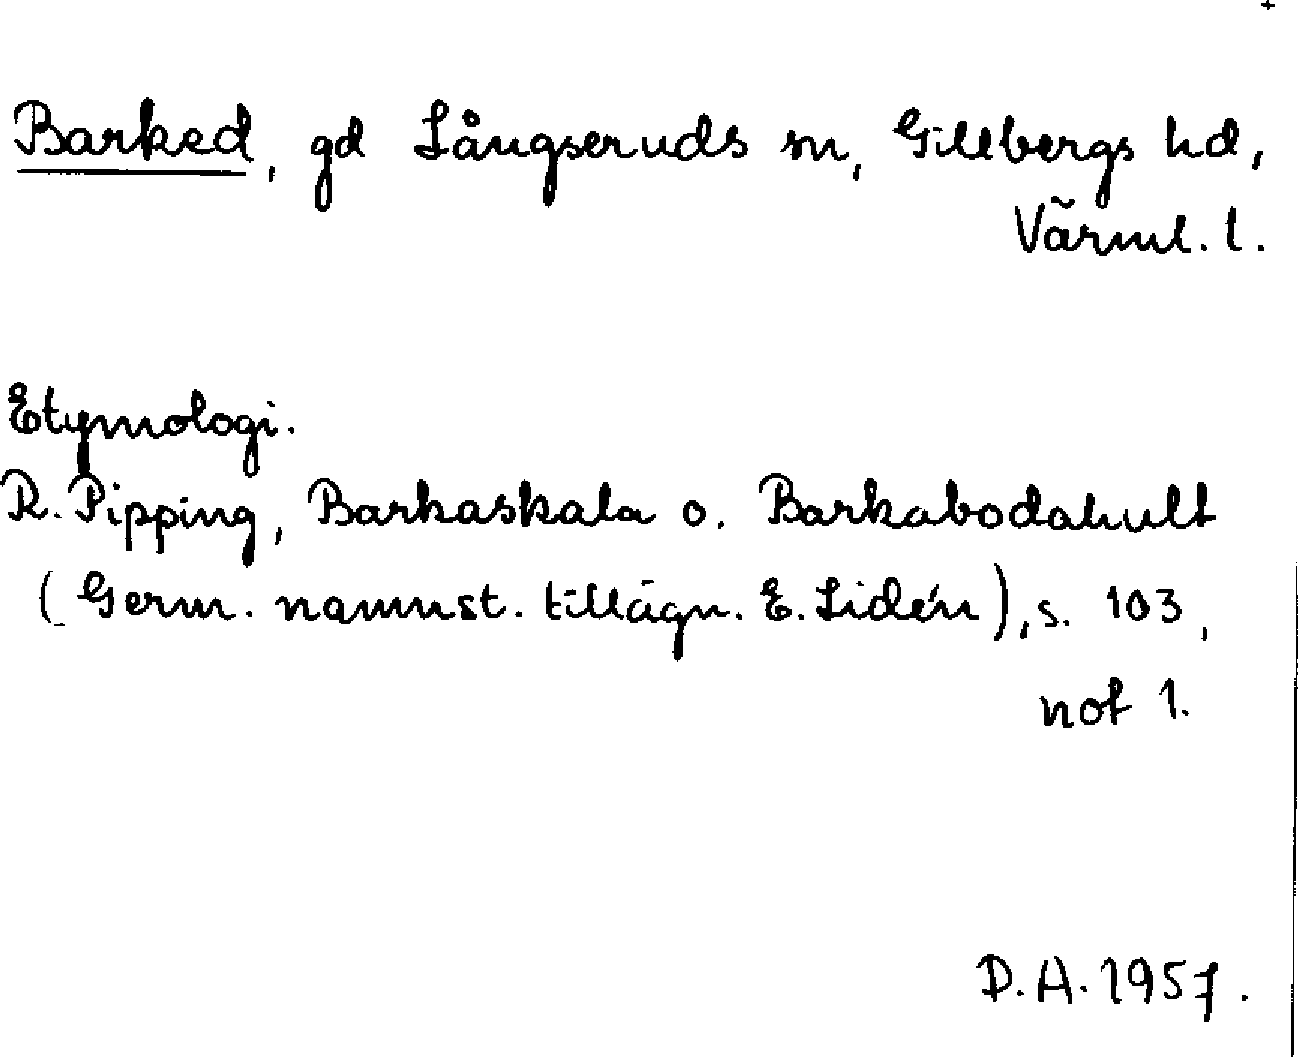 Barked, gd Långseruds sn, Gillbergs hd,
Värml. l.
Etymologi.
R. Pipping, Barkaskala o. Barkabodahult
(Germ. namnst. tillägn. E. Lidén), s. 103,
not 1.
D. A. 1957.